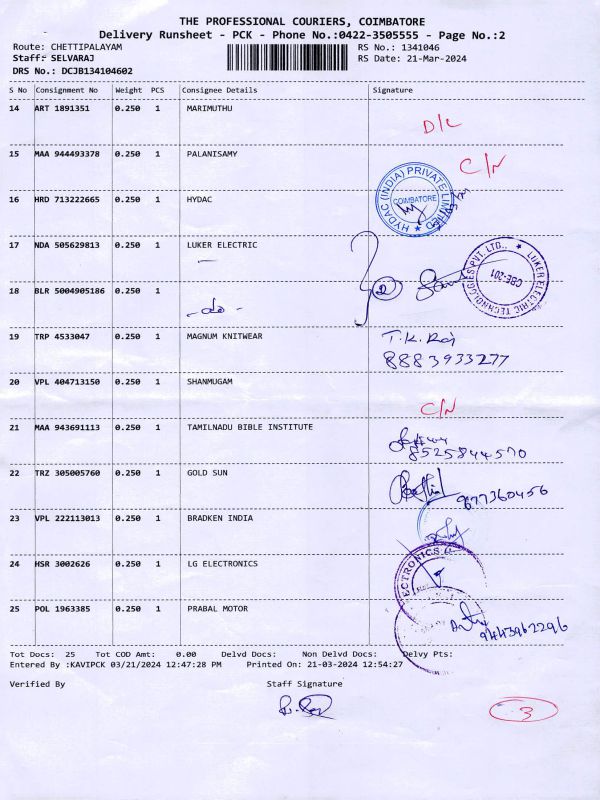 THE PROFESSIONAL COURIERS, COIMBATORE
Delivery Runsheet - PCK - Phone No.:0422-3505555 - Page No.:2
Route: CHETTIPALAYAM RS No.: 1341046
Staff: SELVARAJ RS Date: 21-Mar-2024
DRS No.: DCJB134104602
S No Consignment No Weight PCS Consignee Details Signature
14 ART 1891351 0.250 1 MARIMUTHU
D/L
15 MAA 944493378 0.250 1 PALANISAMY
C/N
16 HRD 713222665 0.250 1 HYDAC
HYDAC (INDIA) PRIVATE LIMITED
COIMBATORE
17 NDA 505629813 0.250 1 LUKER ELECTRIC
LUKER ELECTRIC TECHNOLOGIES PVT. LTD.,
CBE-201
18 BLR 5004905186 0.250 1
- do -
2
19 TRP 4533047 0.250 1 MAGNUM KNITWEAR
T.K. Raj
8883933277
20 VPL 404713150 0.250 1 SHANMUGAM
C/N
21 MAA 943691113 0.250 1 TAMILNADU BIBLE INSTITUTE
8525844570
22 TRZ 305005760 0.250 1 GOLD SUN
977360456
23 VPL 222113013 0.250 1 BRADKEN INDIA
24 HSR 3002626 0.250 1 LG ELECTRONICS
25 POL 1963385 0.250 1 PRABAL MOTOR
9443962296
Tot Docs: 25 Tot COD Amt: 0.00 Delvd Docs: Non Delvd Docs: Delvy Pts:
Entered By :KAVIPCK 03/21/2024 12:47:28 PM Printed On: 21-03-2024 12:54:27
Verified By Staff Signature
3